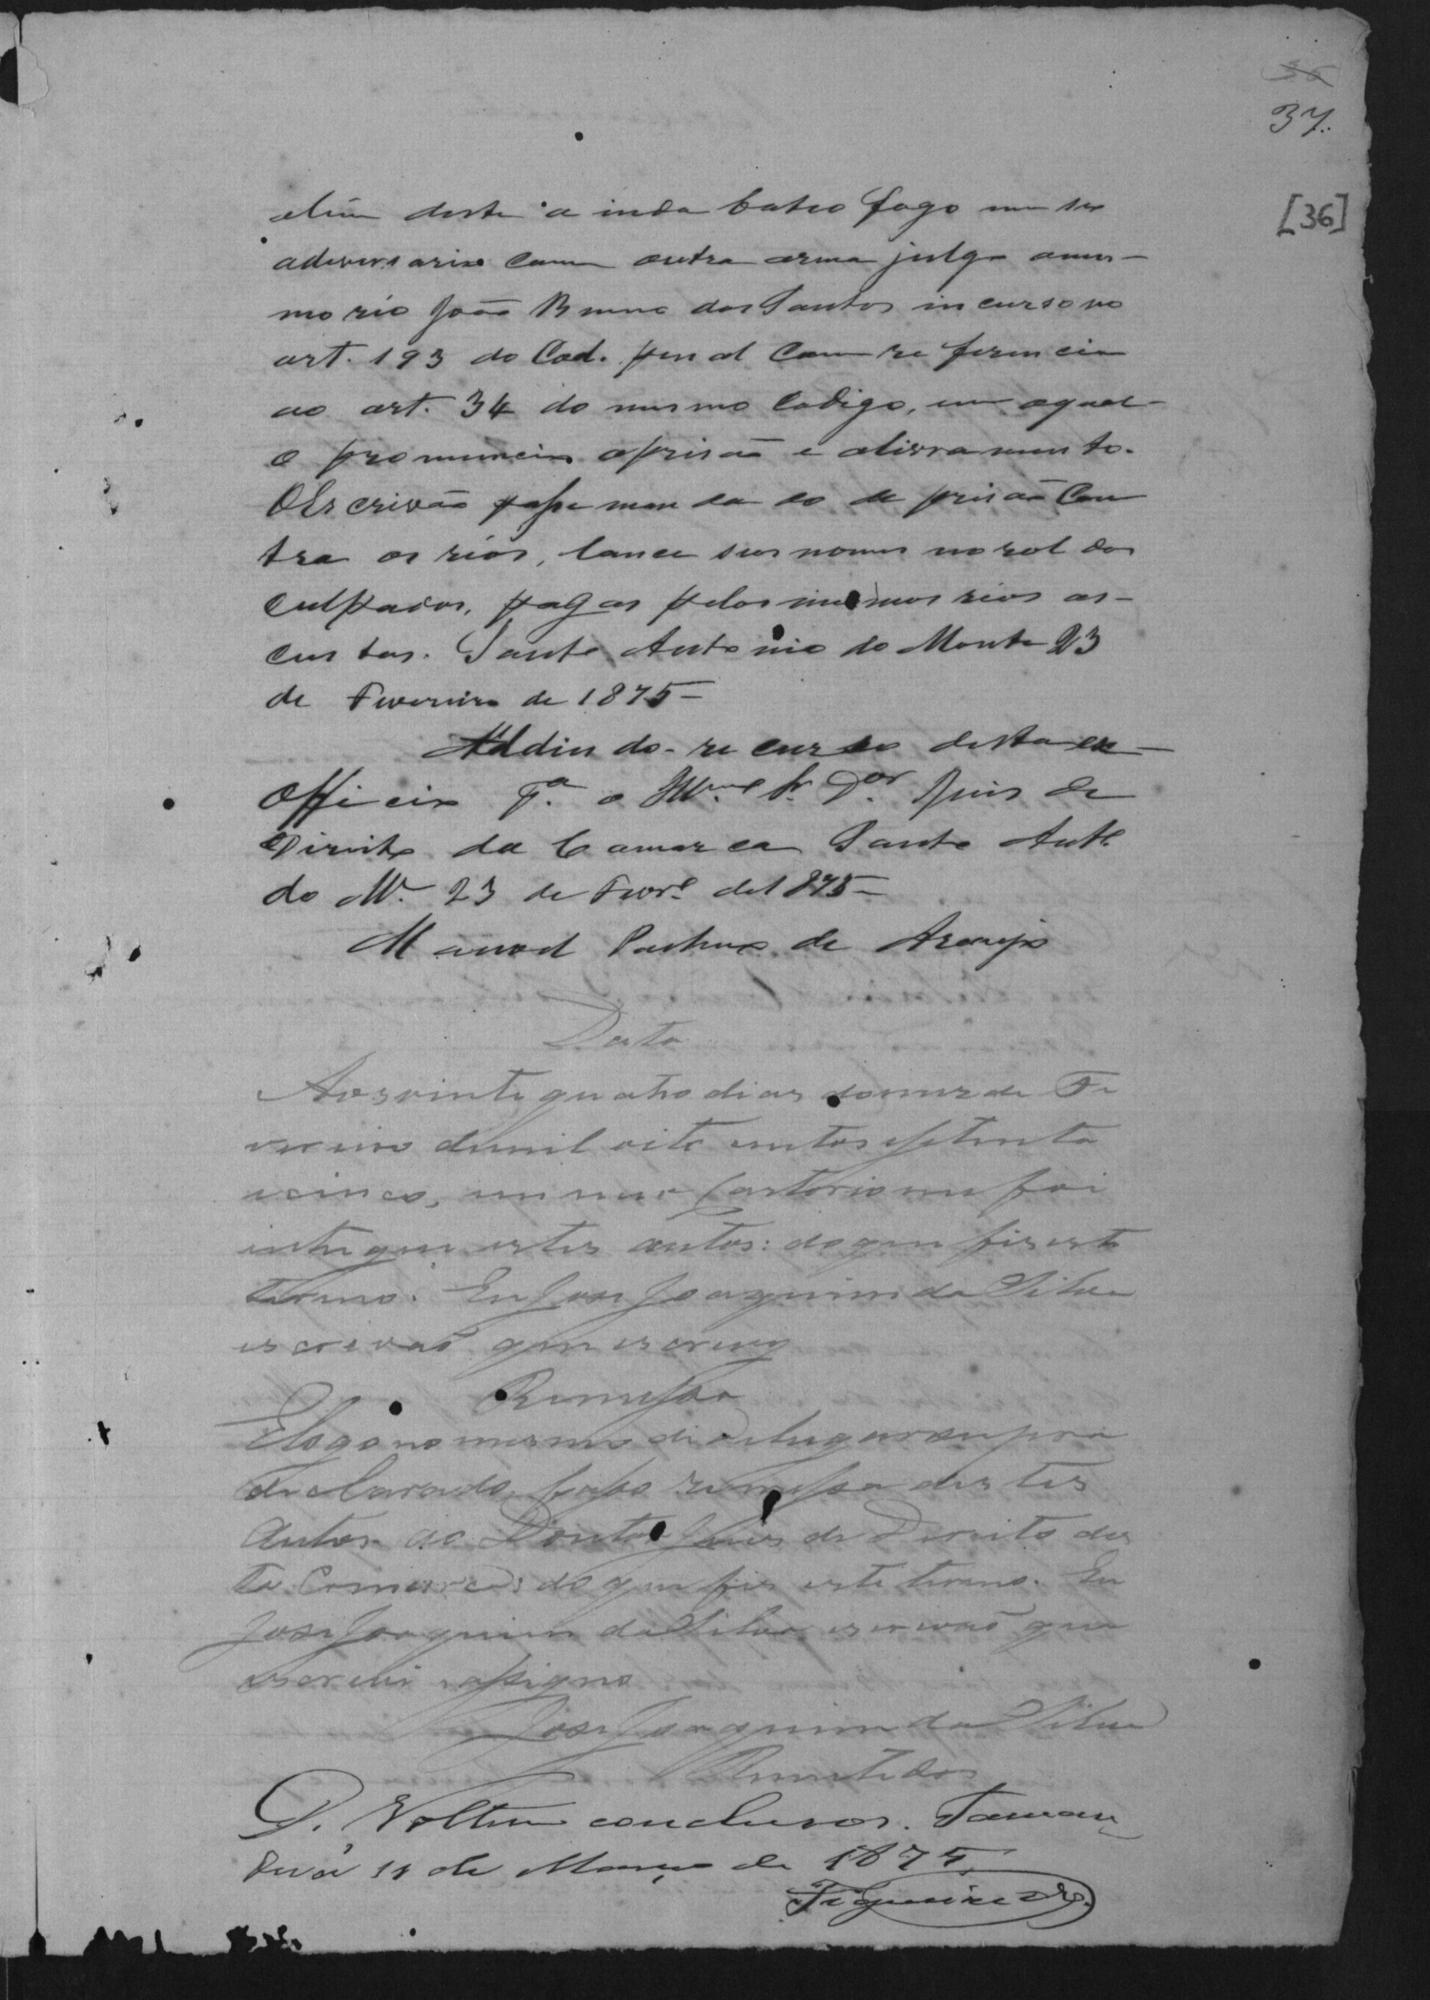 36
37.
[36]
alem deste a inda bateo fogo em seo
adeversario com outra arma julgo omes-
mo rio João Bruno dos Santos incurso no
art. 193 do Cod. penal com re ferencia
ao art. 34 do mesmo Codigo, em oqual
o pronuncio aprisão e alivramento.
OEscrivão passe mandado de prisão Con
tra os rios, lance seos nomes no rol dos
Culpados, pagas pelos mesmos rios as-
custas. Santo Antonio do Monte 23
de Fevereiro de 1875 -
Addindo - recurso desta ex-
Officio Pª. o Illmº Sr. Dor. Juis de
Direito da Comarca Santo Antº
do Mte. 23 de Fevrº de 1875 -
Manoel Pacheco de Araujo
Data
Aos vinte quatro dias do mez de Fe
vereiro de mil oito centos esetenta
ecinco, em meu Cartorio me foi
entregue estes autos: do que fiz este
termo. Eu Jose Joaquim da Silva
escrevaõ que escrevy
Remessa
Elogo no mesmo dia elugar supra
declarado, faço remessa destes
autos ao Doutor Juis de Direito des
ta Comarca: do que fiz este termo. Eu
Jose Joaquim da Silva, escrevaõ que
escrevi easigno
Jose Joaquim da Silva
Remetidos
D. Voltem conclusos. Taman
duá 11 de Março de 1875
Figueiredo.